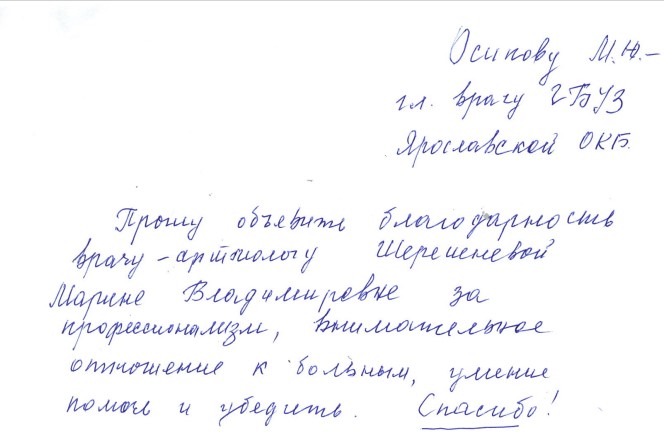 Осипову М.Ю.-
гл. врачу ГБУЗ
Ярославской ОКБ.
Прошу объявить благодарность
врачу-аритмологу Шерешневой
Марине Владимировне за
профессионализм, внимательное
отношение к больным, умение
помочь и убедить. Спасибо!